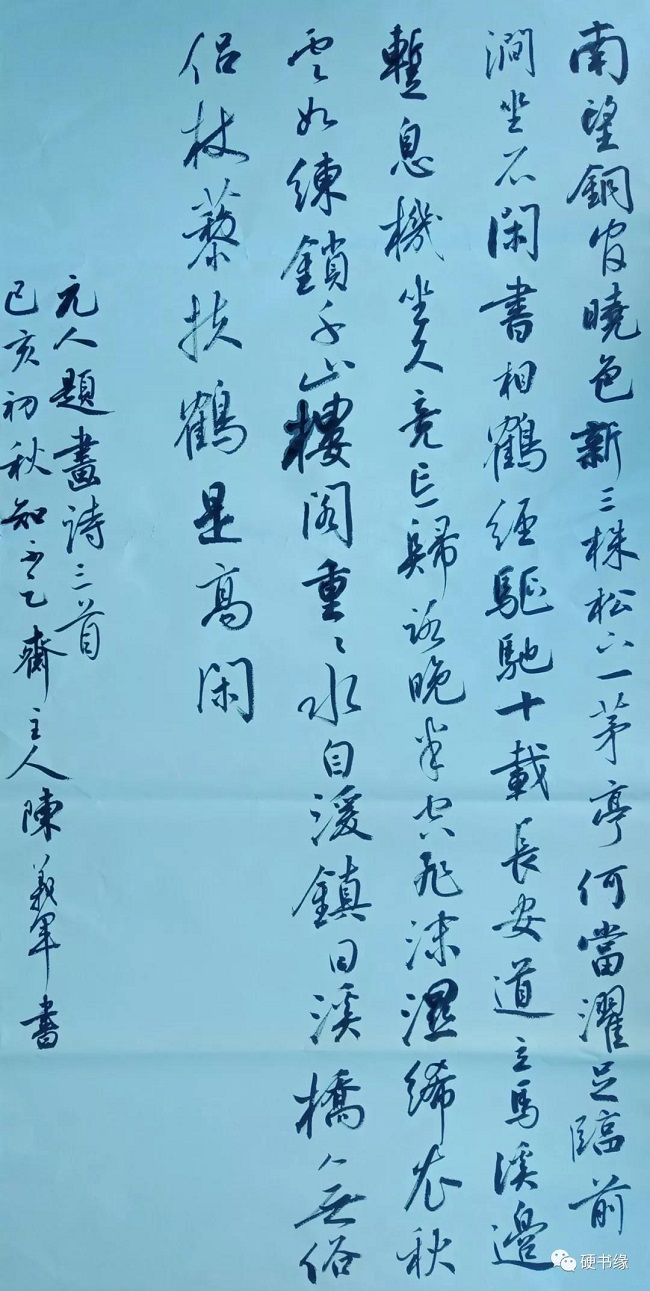 南望銅官曉色新三株松下一茅亭何當濯足臨前
澗坐石閑書相鶴經驅馳十載長安道立馬溪邊
暫息機坐久竟忘歸路晚半空飛沫濕絺衣秋
雲如練鎖千山樓閣重重水自潺鎮日溪橋無俗
侶杖藜扶鶴是高閑
元人題畫詩三首
己亥初秋知不足齋主人陳義軍書
硬书缘